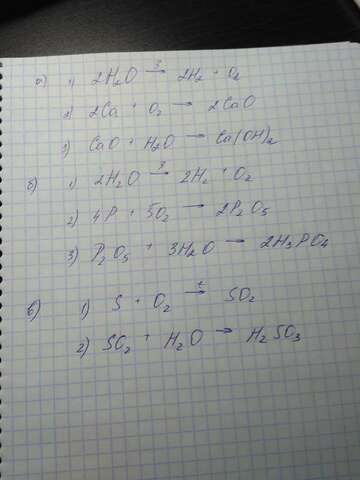 а) 1) 2H₂O →э 2H₂ + O₂
2) 2Ca + O₂ → 2CaO
3) CaO + H₂O → Ca(OH)₂
б) 1) 2H₂O →э 2H₂ + O₂
2) 4P + 5O₂ → 2P₂O₅
3) P₂O₅ + 3H₂O → 2H₃PO₄
в) 1) S + O₂ →t SO₂
2) SO₂ + H₂O → H₂SO₃